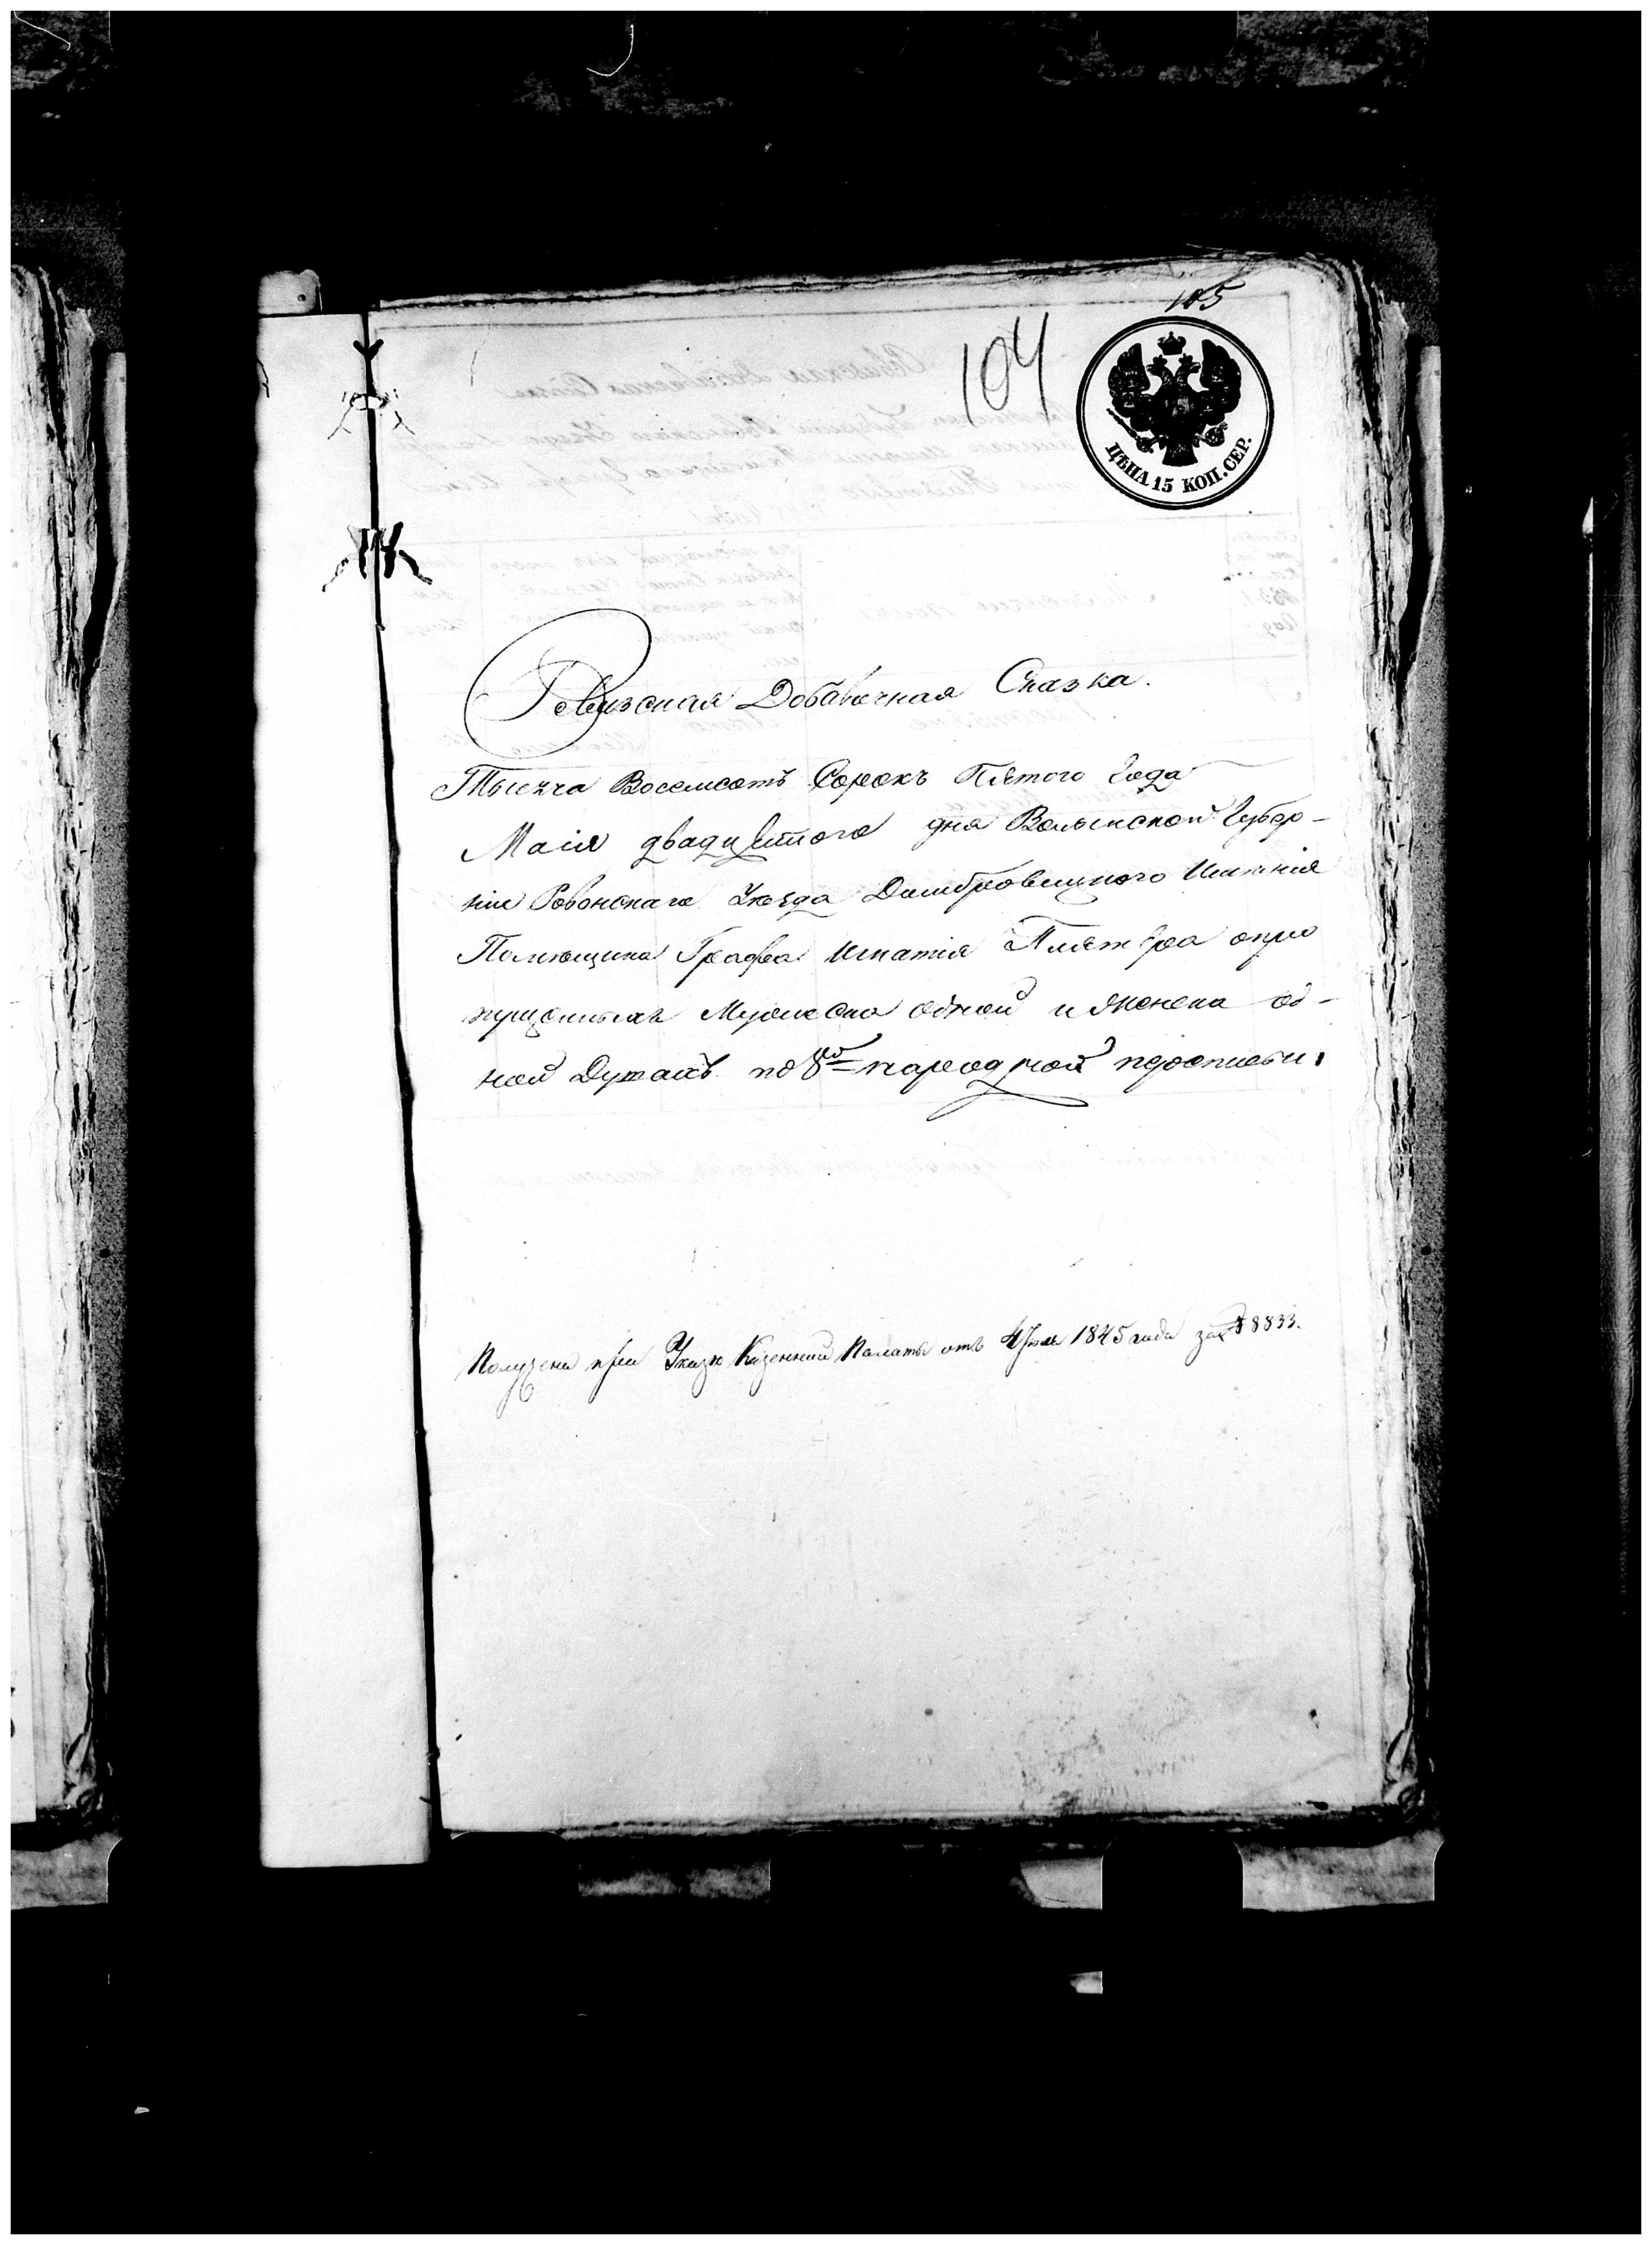 105
104
ЦѢНА 15 КОП. СЕР.
Ревизская Добавочная Сказка.
Тысяча Восемсотъ Сорокъ Пятого Года
Маія двадцятого дня Волынской Губер-
ніи Ровенскаго Уѣзда Домбровицкого Имѣнія
Помѣщика Графа Игнатія Плятера о про
пущенныхъ Мужеска одной и Женска од-
ной Душахъ по 8й народной прописи.
Получена при Указѣ Казенной Палаты отъ 4 1845 года за № 8833.